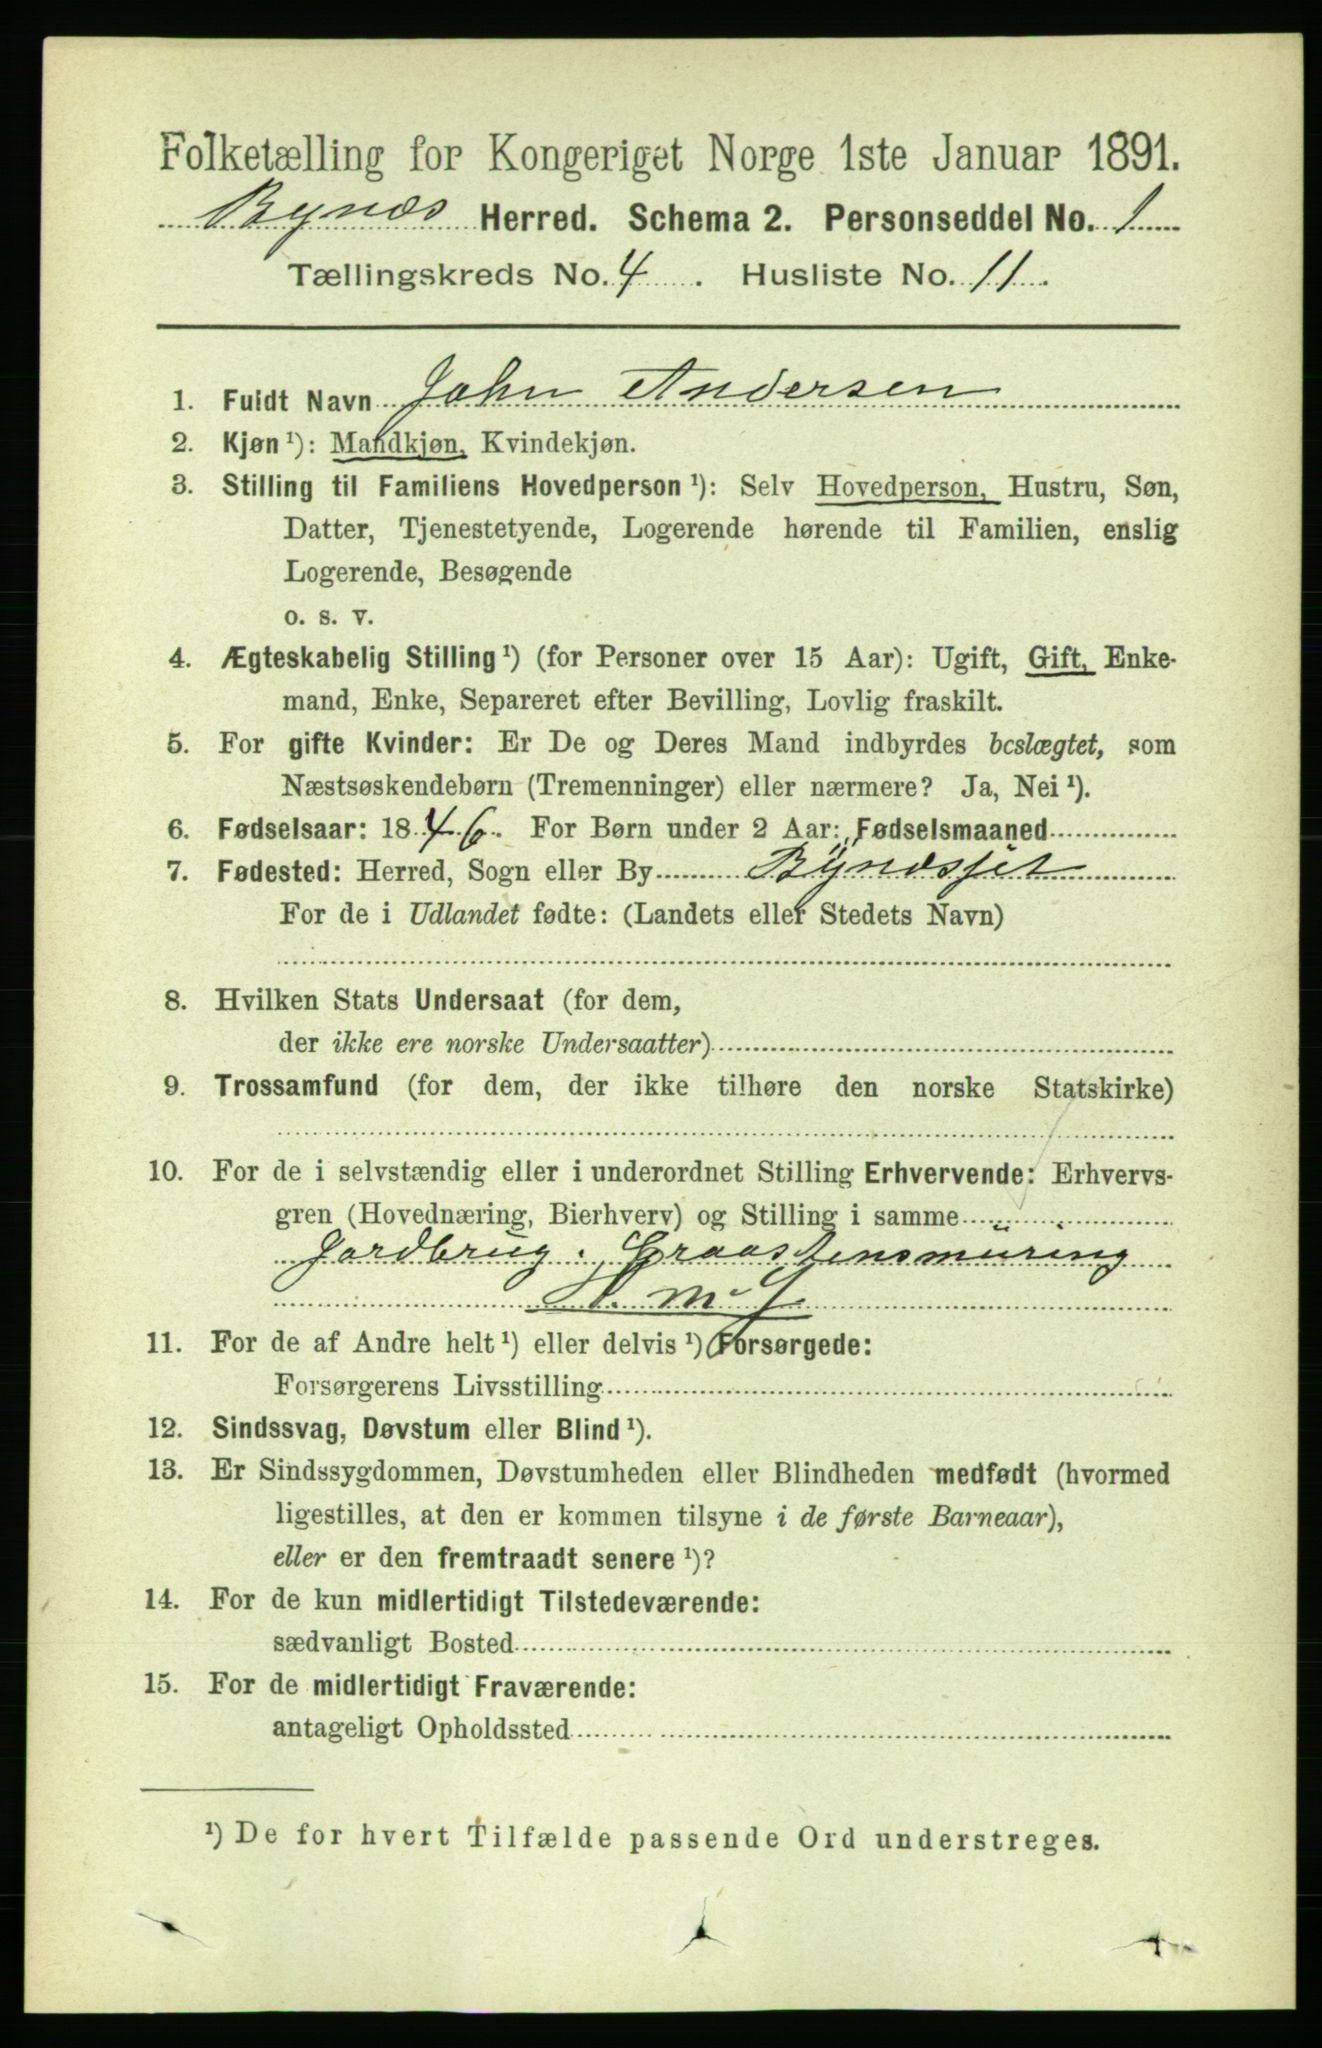 Folketælling for Kongeriget Norge 1ste Januar 1891.
Bynæs Herred. Schema 2. Personseddel No. 1
Tællingskreds No. 4. Husliste No. 11.
1. Fuldt Navn John Andersen
2. Kjøn ¹): Mandkjøn, Kvindekjøn.
3. Stilling til Familiens Hovedperson ¹): Selv Hovedperson, Hustru, Søn,
Datter, Tjenestetyende, Logerende hørende til Familien, enslig
Logerende, Besøgende
o. s. v.
4. Ægteskabelig Stilling ¹) (for Personer over 15 Aar): Ugift, Gift, Enke-
mand, Enke, Separeret efter Bevilling, Lovlig fraskilt.
5. For gifte Kvinder: Er De og Deres Mand indbyrdes beslægtet, som
Næstsøskendebørn (Tremenninger) eller nærmere? Ja, Nei ¹).
6. Fødselsaar: 1846. For Børn under 2 Aar: Fødselsmaaned
7. Fødested: Herred, Sogn eller By Bynæsset
For de i Udlandet fødte: (Landets eller Stedets Navn)
8. Hvilken Stats Undersaat (for dem,
der ikke ere norske Undersaatter)
9. Trossamfund (for dem, der ikke tilhøre den norske Statskirke)
10. For de i selvstændig eller i underordnet Stilling Erhvervende: Erhvervs-
gren (Hovednæring, Bierhverv) og Stilling i samme
Jordbrug. Graastensmuring
11. For de af Andre helt ¹) eller delvis ¹) Forsørgede:
Forsørgerens Livsstilling
12. Sindssvag, Døvstum eller Blind ¹).
13. Er Sindssygdommen, Døvstumheden eller Blindheden medfødt (hvormed
ligestilles, at den er kommen tilsyne i de første Barneaar),
eller er den fremtraadt senere ¹)?
14. For de kun midlertidigt Tilstedeværende:
sædvanligt Bosted
15. For de midlertidigt Fraværende:
antageligt Opholdssted
¹) De for hvert Tilfælde passende Ord understreges.